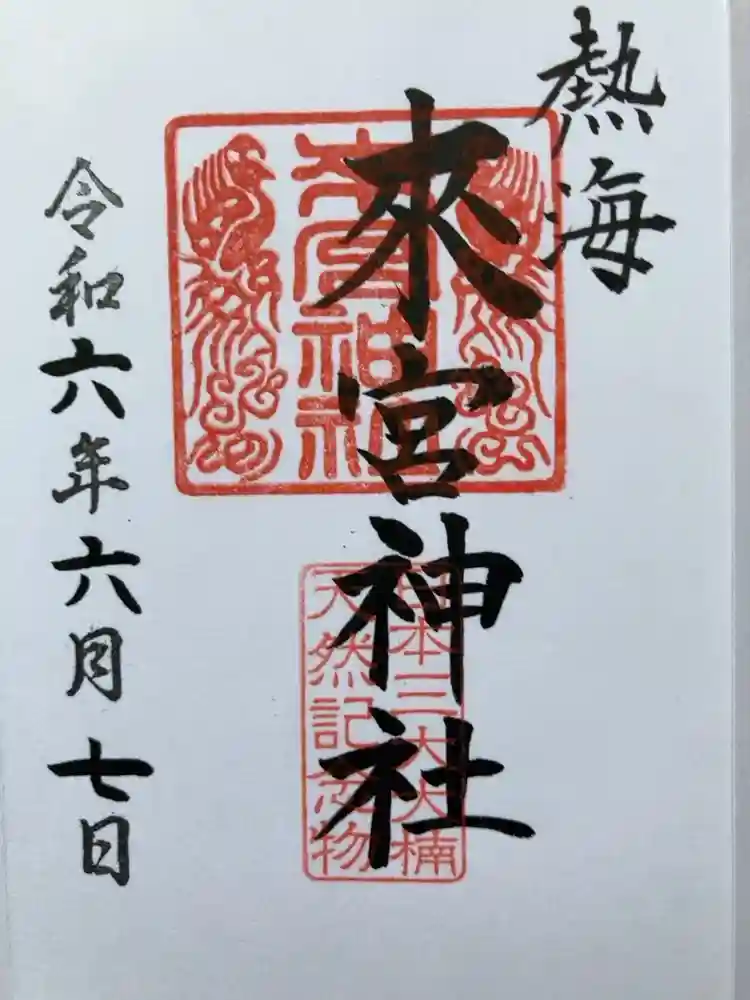 熱海
來宮神社
來宮神社
日本三大大楠
天然記念物
令和六年六月七日